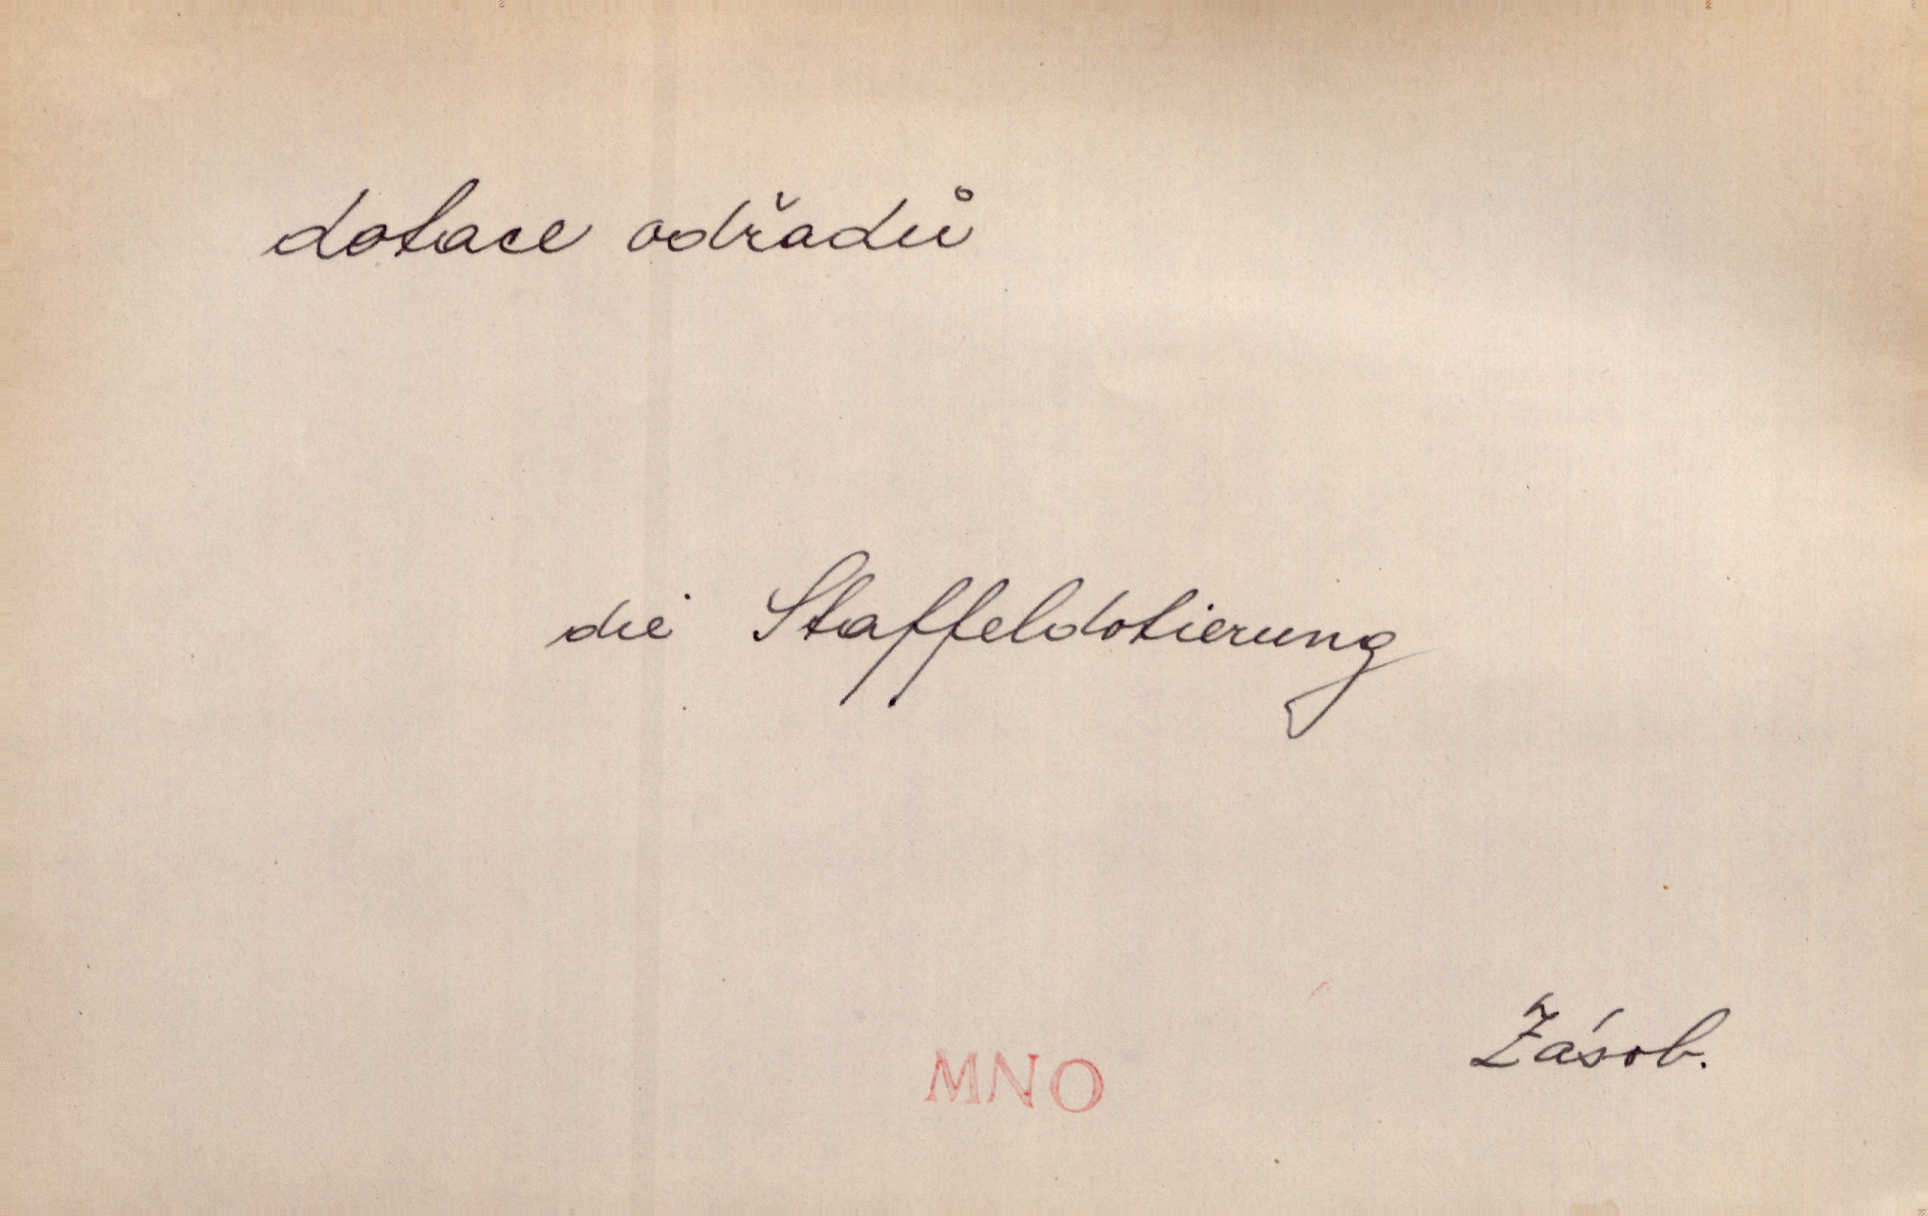 dotace odřadů
die Staffeldotierung
Zásob.
MNO